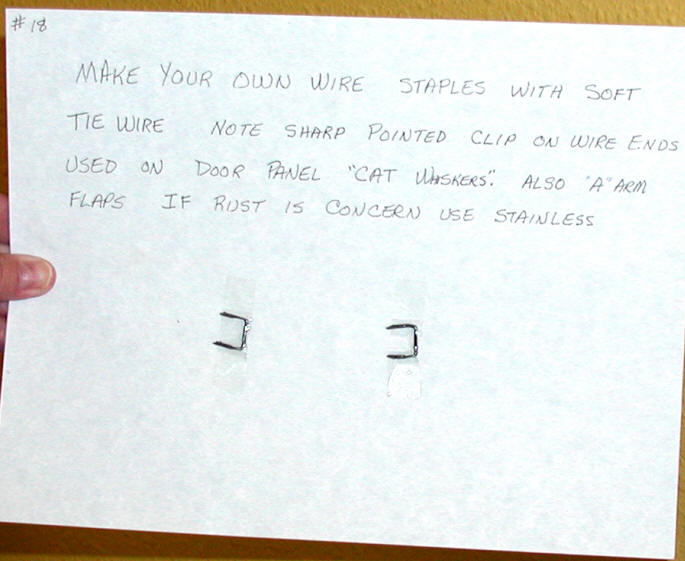 #18
MAKE YOUR OWN WIRE STAPLES WITH SOFT
TIE WIRE NOTE SHARP POINTED CLIP ON WIRE ENDS
USED ON DOOR PANEL "CAT WHISKERS". ALSO "A" ARM
FLAPS IF RUST IS CONCERN USE STAINLESS